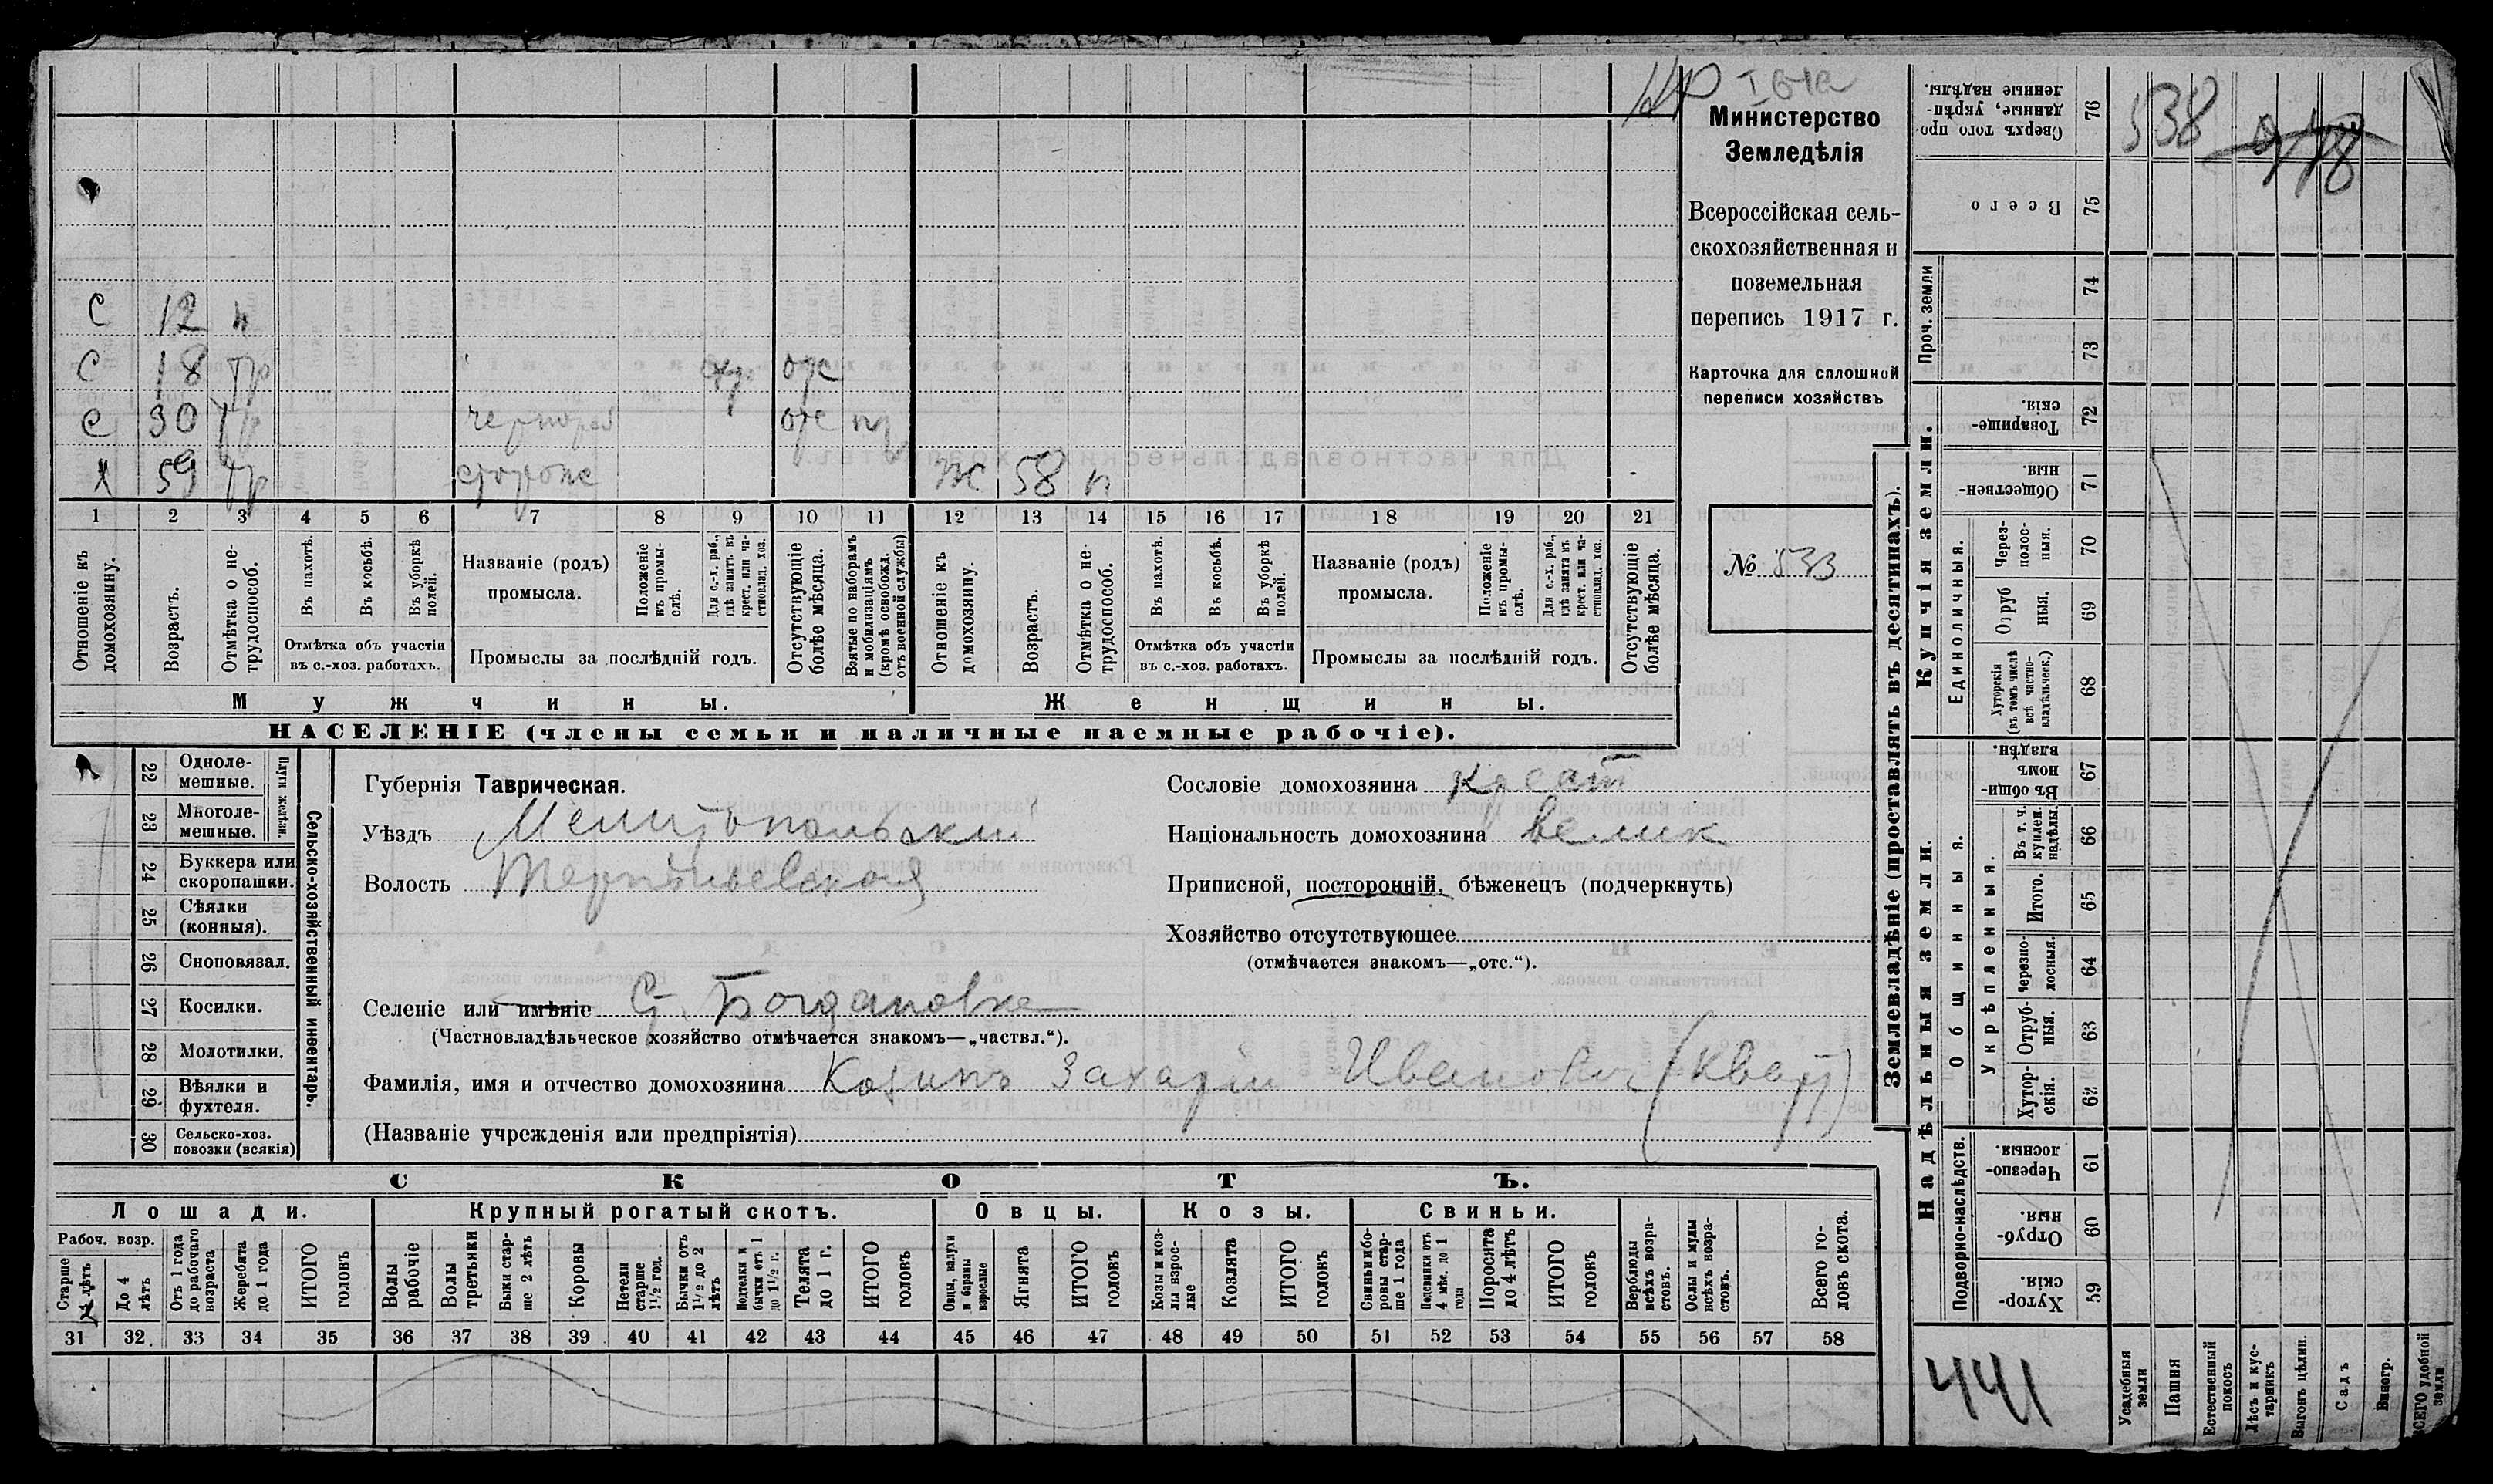 538
Министерство
Земледѣлія
Всероссійская сель-
скохозяйственная и
поземельная
перепись 1917 г.
Карточка для сплошной
переписи хозяйствъ
№ 533
С 12 н
С 18 тр отс
С 30 тр чернораб отс
Х 59 тр сторож Ж 58 н
1 2 3 4 5 6 7 8 9 10 11 12 13 14 15 16 17 18 19 20 21
Отношеніе къ домохозяину.
Возрастъ.
Отмѣтка о не-трудоспособ.
Въ пахотѣ.
Въ косьбѣ.
Въ уборкѣ полей.
Отмѣтка объ участіи
въ с.-хоз. работахъ.
Названіе (родъ)
промысла.
Положеніе въ промы-слѣ.
Для с.-х. раб., гдѣ занятъ въ крест. или ча-стновлад. хоз.
Промыслы за послѣдній годъ.
Отсутствующіе болѣе мѣсяца.
Взятые по наборамъ и мобилизаціямъ (кромѣ освобожд. отъ военной службы)
Отношеніе къ домохозяину.
Возрастъ.
Отмѣтка о не-трудоспособ.
Въ пахотѣ.
Въ косьбѣ.
Въ уборкѣ полей.
Отмѣтка объ участіи
въ с.-хоз. работахъ.
Названіе (родъ)
промысла.
Положеніе въ промы-слѣ.
Для с.-х. раб., гдѣ занята въ крест. или ча-стновлад. хоз.
Промыслы за послѣдній годъ.
Отсутствующіе болѣе мѣсяца.
Мужчины.
Женщины.
НАСЕЛЕНІЕ (члены семьи и наличные наемные рабочіе).
Сельско-хозяйственный инвентарь.
Плуги желѣзн.
22 Одноле-мешные.
23 Многоле-мешные.
24 Буккера или скоропашки.
25 Сѣялки (конныя).
26 Сноповязал.
27 Косилки.
28 Молотилки.
29 Вѣялки и фухтеля.
30 Сельско-хоз. повозки (всякія)
Губернія Таврическая.
Уѣздъ Мелитопольскій
Волость Терпѣньевская
Сословіе домохозяина крест
Національность домохозяина велик
Приписной, посторонній, бѣженецъ (подчеркнуть)
Хозяйство отсутствующее
(отмѣчается знакомъ—„отс.“).
Селеніе или имѣніе С. Богдановка
(Частновладѣльческое хозяйство отмѣчается знакомъ—„частвл.“).
Фамилія, имя и отчество домохозяина Козинъ Захарій Иванович (кварт)
(Названіе учрежденія или предпріятія)
СКОТЪ.
Лошади.
Крупный рогатый скотъ.
Овцы.
Козы.
Свиньи.
Рабоч. возр.
Старше 4 лѣтъ
До 4 лѣтъ
Отъ 1 года до рабочаго возраста
Жеребята до 1 года
ИТОГО головъ
Волы рабочіе
Волы третьяки
Быки стар-ше 2 лѣтъ
Коровы
Нетели старше 1½ год.
Бычки отъ 1½ до 2 лѣтъ
Нетелки и бычки отъ 1 до 1½ г.
Телята до 1 г.
ИТОГО головъ
Овцы, валухи и бараны взрослые
Ягнята
ИТОГО головъ
Козы и коз-лы взрос-лые
Козлята
ИТОГО головъ
Свиньи и бо-ровы стар-ше 1 года
Подсвинки отъ 4 мѣс. до 1 года
Поросята до 4 лѣтъ
ИТОГО головъ
Верблюды всѣхъ возра-стовъ.
Ослы и мулы всѣхъ возра-стовъ.
Всего го-ловъ скота.
31 32 33 34 35 36 37 38 39 40 41 42 43 44 45 46 47 48 49 50 51 52 53 54 55 56 57 58
Землевладѣніе (проставлять въ десятинахъ).
Купчія земли.
Надѣльныя земли.
Проч. земли
Сверхъ того про-данные, укрѣп-ленные надѣлы. 76
Всего 75
74
73
Товарище-скія. 72
Обществен-ныя 71
Единоличныя.
Через-полос-ныя. 70
Отруб ныя. 69
Хуторскія (въ томъ числѣ всѣ частно-владѣльческ.) 68
Общинныя.
Въ общи-номъ владѣн. 67
Укрѣпленныя.
Въ т. ч. куплен. надѣлы. 66
Итого. 65
Черезпо-лосныя. 64
Отруб-ныя. 63
Хутор-скія. 62
Подворно-наслѣдств.
Черезпо-лосныя. 61
Отруб-ныя. 60
Хутор-скія. 59
441
Усадебныя земли
Пашня
Естественный покосъ
Лѣсъ и кус-тарникъ
Выгонъ цѣлин.
Садъ
Виногр.
ВСЕГО удобной земли